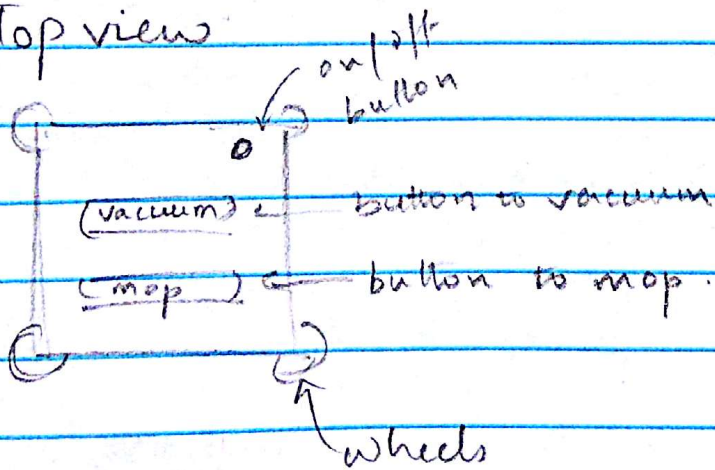 Top view
on/off
button
vacuum
button to vacuum
mop
button to mop.
wheels